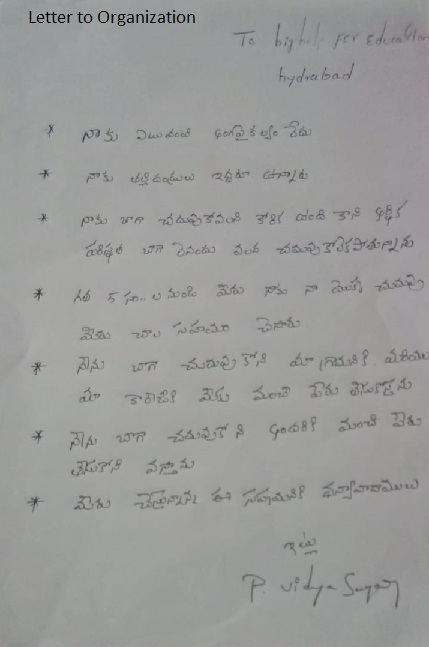 Letter to Organization
To bighelp for education
hydrabad
* నాకు ఎటువంటి అంగవైకల్యం లేదు
* నాకు తల్లిదండ్రులు ఇద్దరూ ఉన్నారు
* నాకు బాగా చదువుకోవాలని కోరిక ఉంది కాని ఆర్థిక
పరిస్థితి బాగా లేనందు వలన చదువుకోలేకపోతున్నాను
* గత సం.. ల నుండి మీరు నాకు నా యొక్క చదువుపై
మీరు చాల సహాయం చేసారు
* నేను బాగా చదువుకోని మా గ్రామనికి మరియు
మా కాలేజికి మీకు మంచి పేరు తీసుకొస్తను
* నేను బాగా చదువుకోని అందరికి మంచి పేరు
తీసుకోని వస్తాను
* మీరు చేస్తున్న ఈ సహయనికి ధన్యావాదాములు
ఇట్లు
P. Vidya